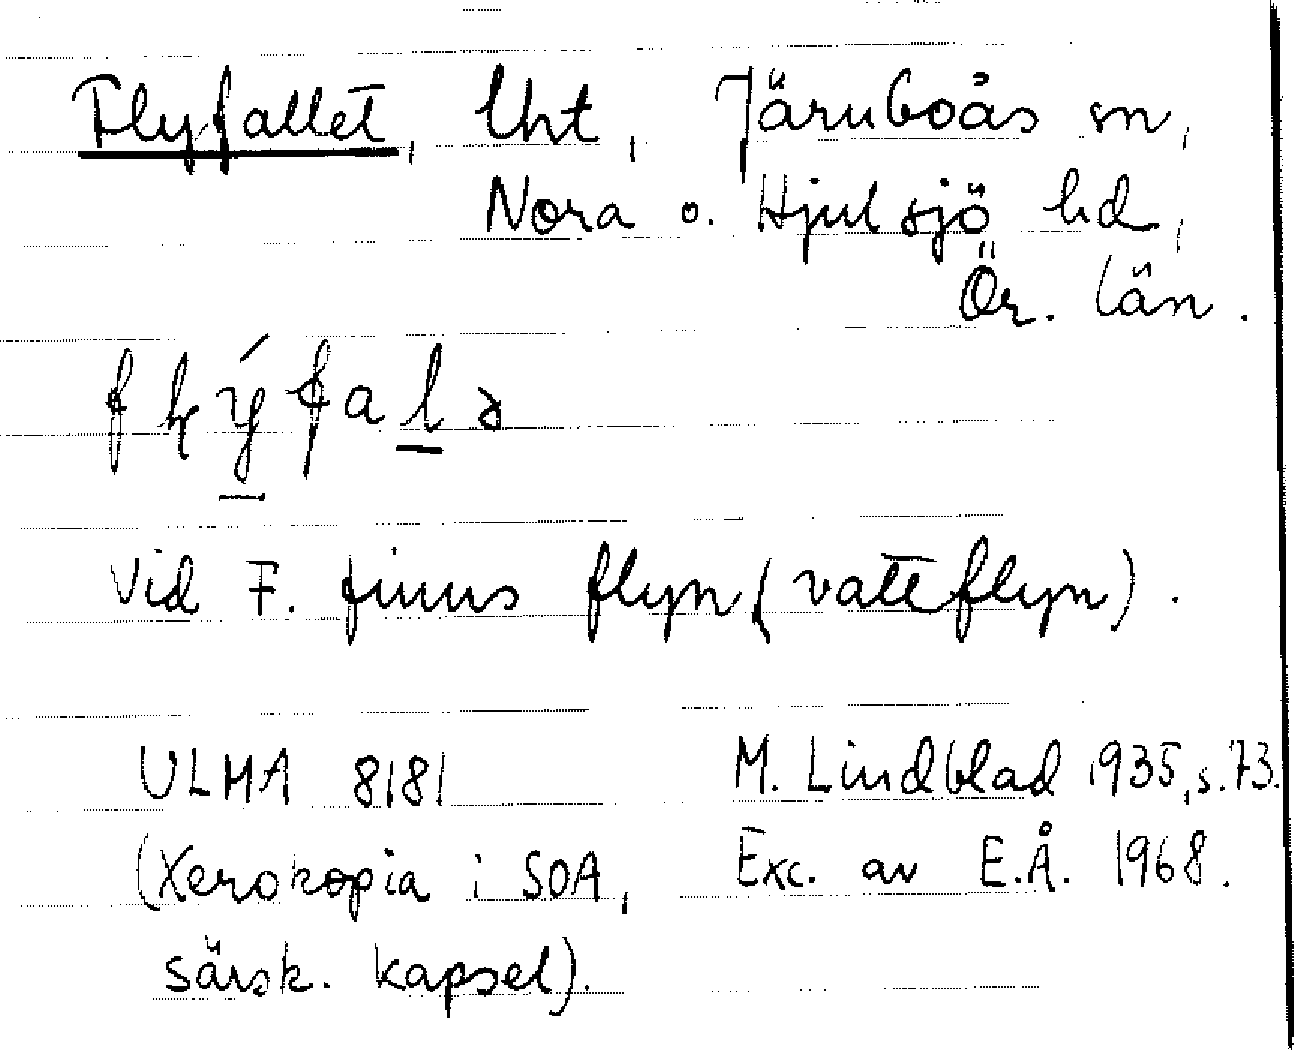 Flyfallet, lht, Järnboås sn,
Nora o. Hjulsjö hd,
Ör. län.
Vid F. finns flyn (vatteflyn).
ULMA 8181 M. Lindblad 1935, s. 73.
(Xerokopia i SOA, Exc. av E.Å. 1968.
särsk. kapsel).